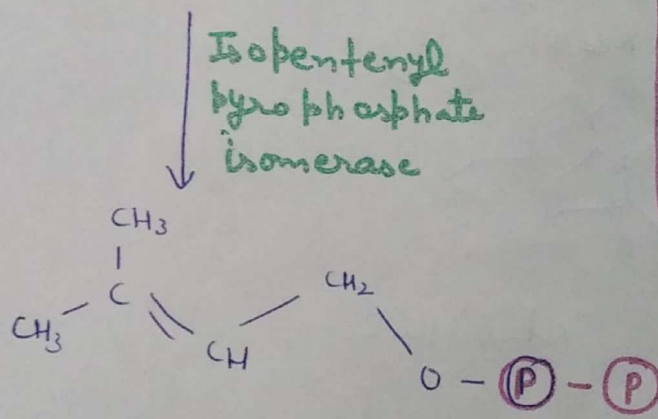 Isopentenyl
pyrophosphate
isomerase
CH3
C
CH3
CH
CH2
O - P - P